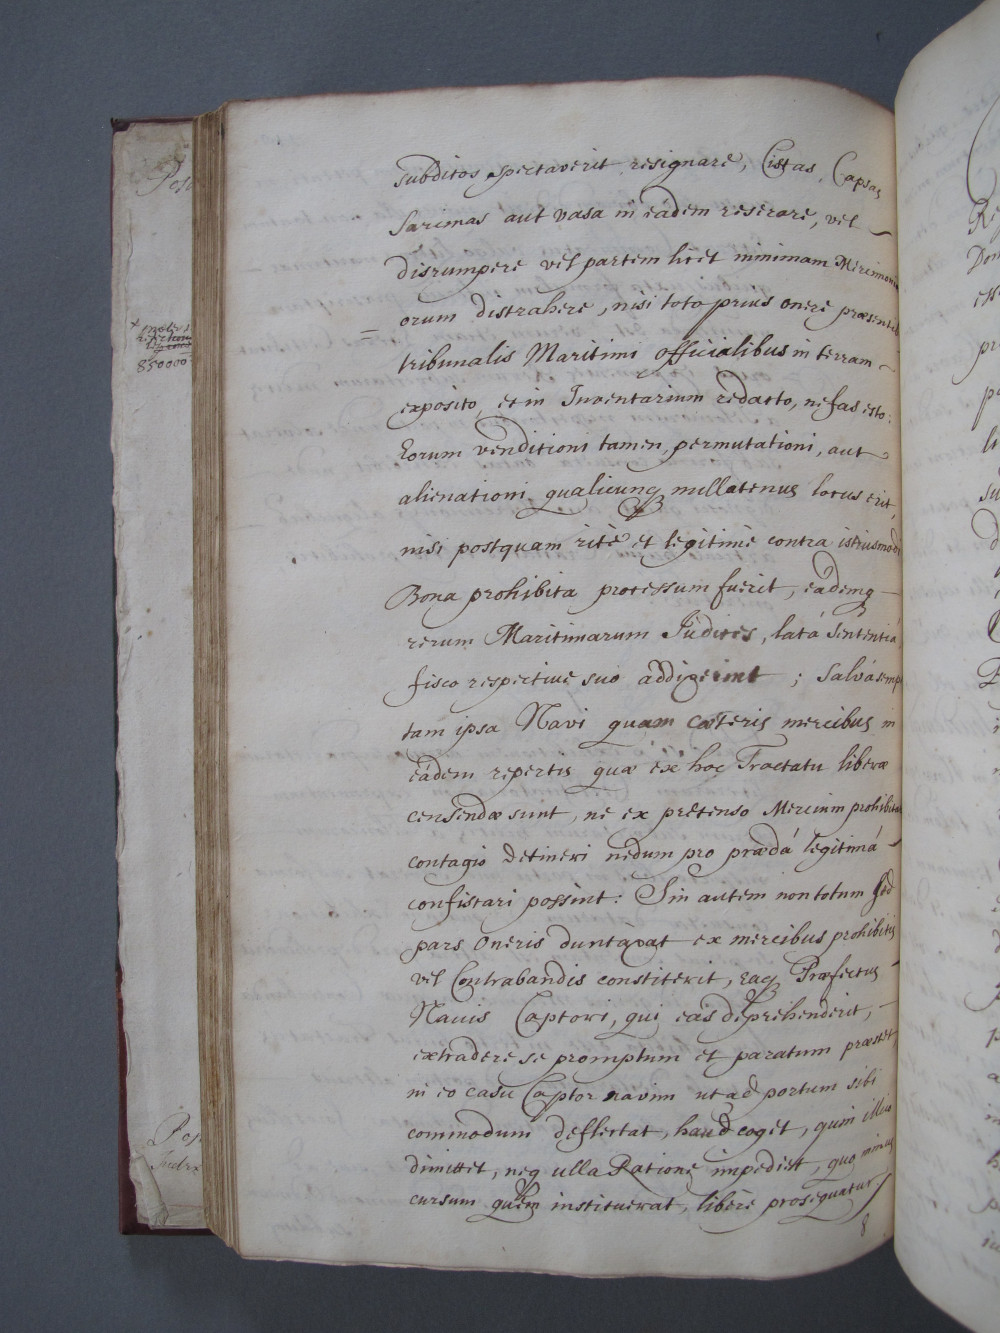 subditos spectaverit resignare, Cistas, Capsas
sarcinas aut vasa in eâdem reserare, vel
disrumpere vel partem licèt minimam Mercimoni
= orum distrahere, nisi toto prius onere præsentib
tribunalis Maritimi officialibus in terram
exposito, et in Inventarium redacto, nefas esto:
Eorum venditioni tamen, permutationi, aut
alienationi qualicunq nullatenus locus erit,
nisi postquam ritè et legitimè contra istiusmodi
Bona prohibita processum fuerit, eademq
rerum Maritimarum Judices, latâ Sententiâ
fisco respective suo addixerint; Salvâ semp
tam ipsa Navi quam cæteris mercibus in
eâdem repertis quæ ex hoc Tractatu liberæ
censendæ sunt, ne ex prætenso Mercium prohibitar
contagio detineri nedum pro prædâ legitimâ
confiscari possint: Sin autem non totum sed
pars Oneris duntaxat ex mercibus prohibitis
vel Contrabandis constiterit, easq Præfectus
Navis Captori, qui eas deprehenderit,
extradere se promptum et paratum præstet
in eo casu Captor navim ut ad portum sibi
commodum deflectat, haud coget, quin illico
dimittet, neq ulla Ratione impediet, quo minus
cursum quem instituerat, libère prosequatur
8
Pos
850000
Pos
Indra